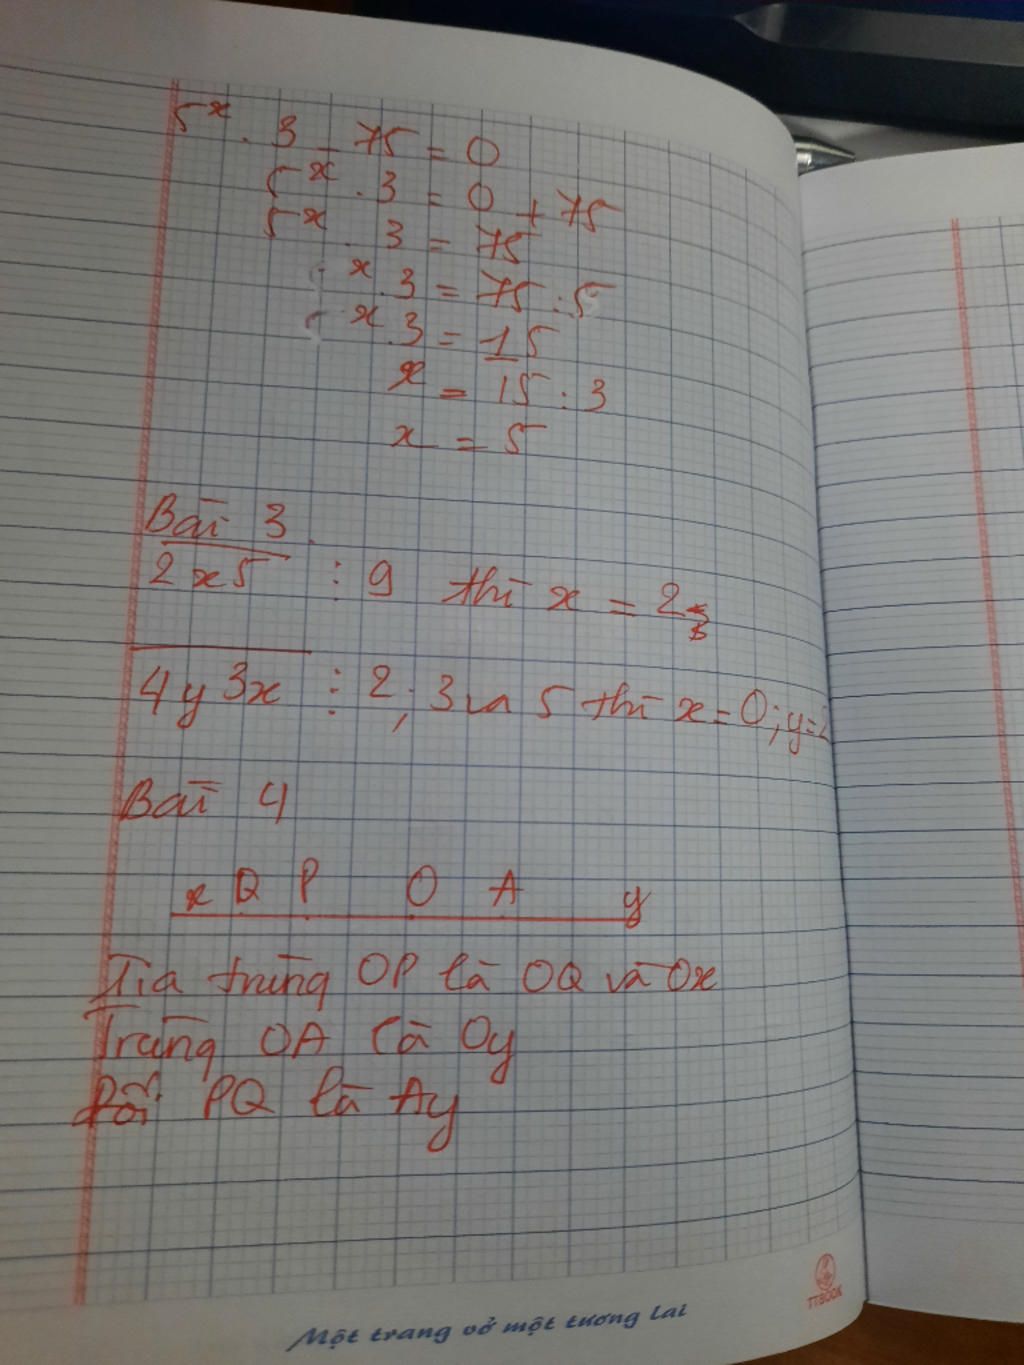 5ˣ . 3 - 75 = 0
5ˣ . 3 = 0 + 75
5ˣ . 3 = 75
x . 3 = 75 : 5
x . 3 = 15
x = 15 : 3
x = 5
Bài 3
2x5 ⋮ 9 thì x = 2
4y3x ⋮ 2; 3 và 5 thì x = 0; y = 2
Bài 4
x Q P O A y
Tia trùng OP là OQ và Ox
Trùng OA là Oy
Đối PQ là Ay
TTBOOK
Một trang vở một tương lai